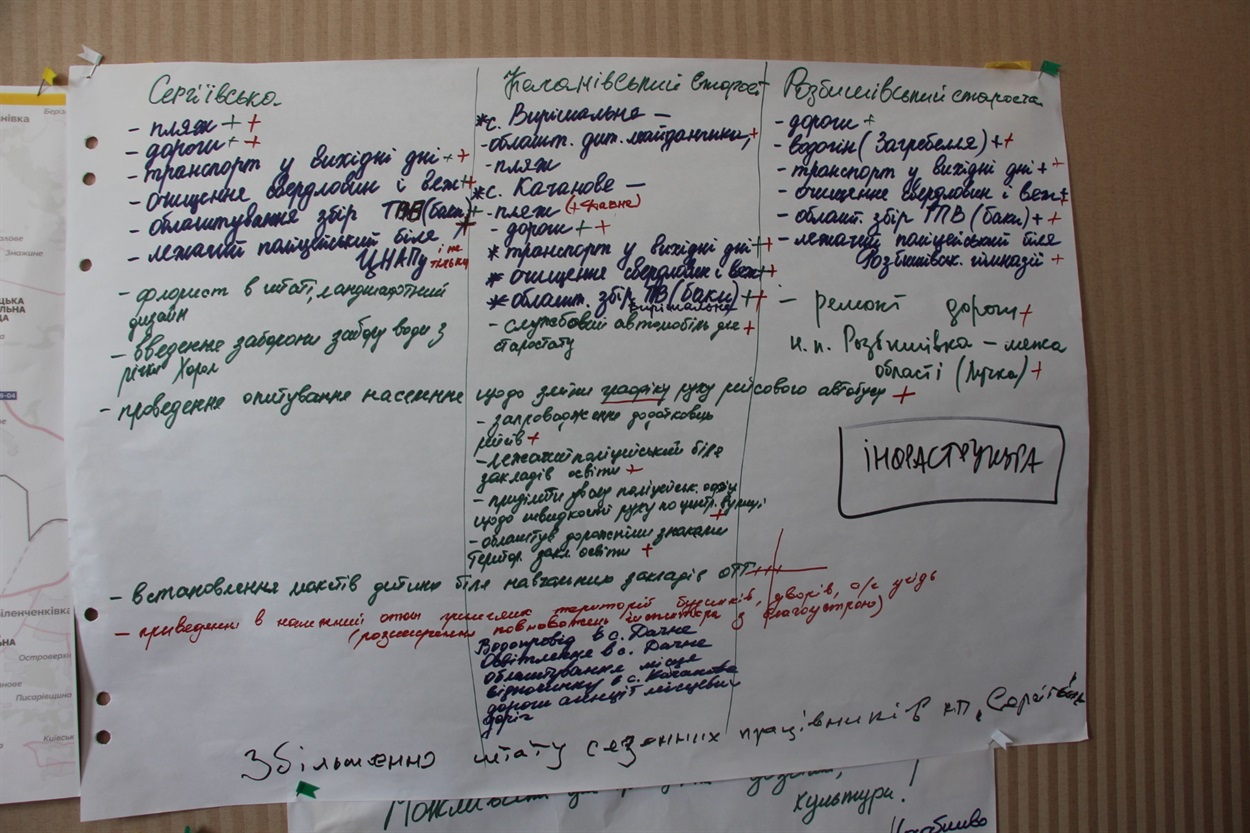 Сергіївська
- пляж + +
- дороги + +
- транспорт у вихідні дні + +
- очищення свердловин і веж ++
- облаштування збір ТПВ (баки) +
- лежачий поліцейський біля +
ЦНАПу і не тільки
- флорист в штаті, ландшафтний
дизайн
- введення заборони забору води з
річки Хорол
- проведення опитування населення щодо зміни графіку руху рейсового автобусу +
Качанівський старост
* с. Вирішальне –
- облашт. дит. майданчика, +
- пляж
* с. Качанове –
- пляж (+ Давне)
- дороги + +
* транспорт у вихідні дні ++
* очищення свердловин і веж ++
* облашт. збір ТВ (баки) ++
Вирішальне
- службовий автомобіль для +
старостату
- запровадження додаткових
рейсів +
- лежачий поліцейський біля
закладів освіти +
- приділити увагу поліцейськ. офіц
щодо швидкості руху по центр. вулиці
+
- облаштув дорожніми знаками
територ. закл. освіти +
Розбишівський староста
- дороги +
- водогін (Загребелля) ++
- транспорт у вихідні дні + +
- очищення свердловин і веж +
- облашт. збір ТПВ (баки) + +
- лежачий поліцейський біля
Розбишівськ. гімназії +
- ремонт дороги +
н. п. Розбишівка – межа
області (Лучка) +
ІНФРАСТРУКТУРА
- встановлення макетів дитини біля навчальних закладів ОТГ +++
- приведення в належний стан прилеглих територій будинків, дворів, о/с угідь
(розширення повноважень інспектора з благоустрою)
Водопровід в с. Дачне
Освітлення в с. Дачне
облаштування місця
відпочинку в с. Качанове
дороги місцевих
доріг
Збільшення штату сезонних працівників КП, Сергіївськ
Можливість
культури!